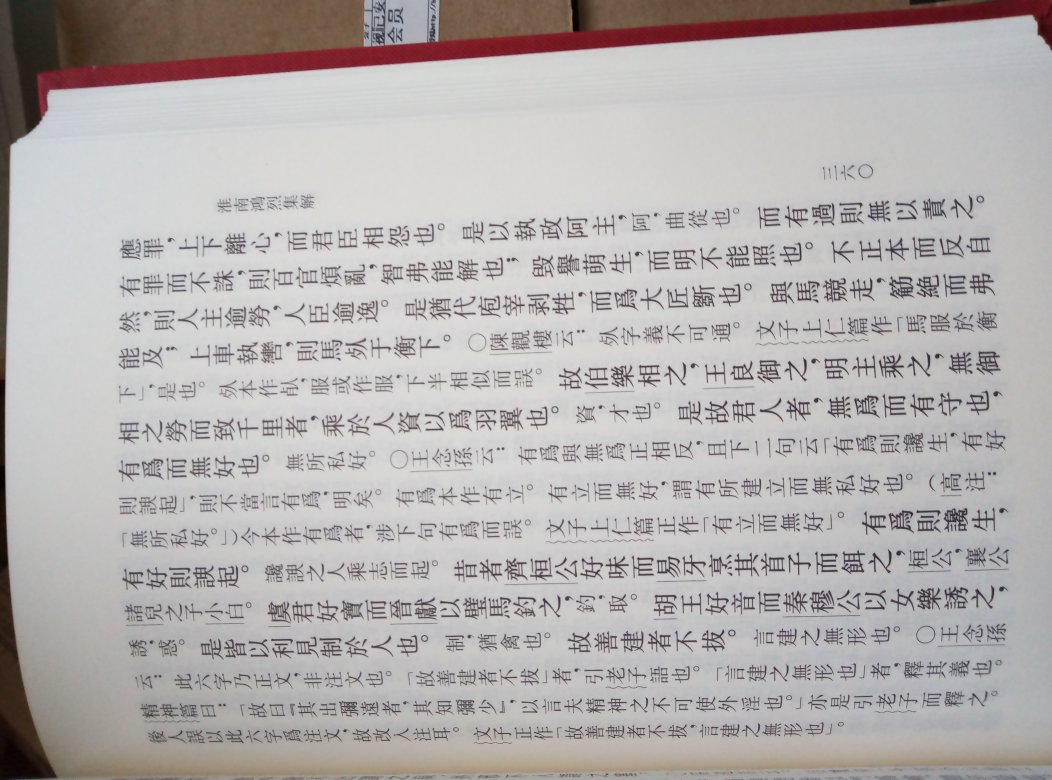 视记安
会员
淮南鴻烈集解
三六〇
應罪,上下離心,而君臣相怨也。是以執政阿主,阿,曲從也。而有過則無以責之。
有罪而不誅,則百官煩亂,智弗能解也;毀譽萌生,而明不能照也。不正本而反自
然,則人主逾勞,人臣逾逸。是猶代庖宰剥牲,而爲大匠斲也。與馬競走,筋絶而弗
能及;上車執轡,則馬死于衡下。〇陳觀樓云:死字義不可通。文子上仁篇作「馬服於衡
下」,是也。死本作𠬝,服或作服,下半相似而誤。故伯樂相之,王良御之,明主乘之,無御
相之勞而致千里者,乘於人資以爲羽翼也。資,才也。是故君人者,無爲而有守也,
有爲而無好也。無所私好。〇王念孫云:有爲與無爲正相反,且下二句云「有爲則讒生,有好
則諛起」,則不當言有爲,明矣。有爲本作有立。有立而無好,謂有所建立而無私好也。(高注:
「無所私好。」)今本作有爲者,涉下句有爲而誤。文子上仁篇正作「有立而無好」。有爲則讒生,
有好則諛起。讒諛之人乘志而起。昔者齊桓公好味而易牙烹其首子而餌之,桓公,襄公
諸兒之子小白。虞君好寶而晉獻以璧馬釣之,釣,取。胡王好音而秦穆公以女樂誘之,
誘,惑。是皆以利見制於人也。制,猶禽也。故善建者不拔。言建之無形也。〇王念孫
云:此六字乃正文,非注文也。「故善建者不拔」者,引老子語也。「言建之無形也」者,釋其義也。
精神篇曰:「故曰『其出彌遠者,其知彌少』,以言夫精神之不可使外淫也。」亦是引老子而釋之。
後人誤以此六字爲注文,故改入注耳。文子正作「故善建者不拔,言建之無形也」。